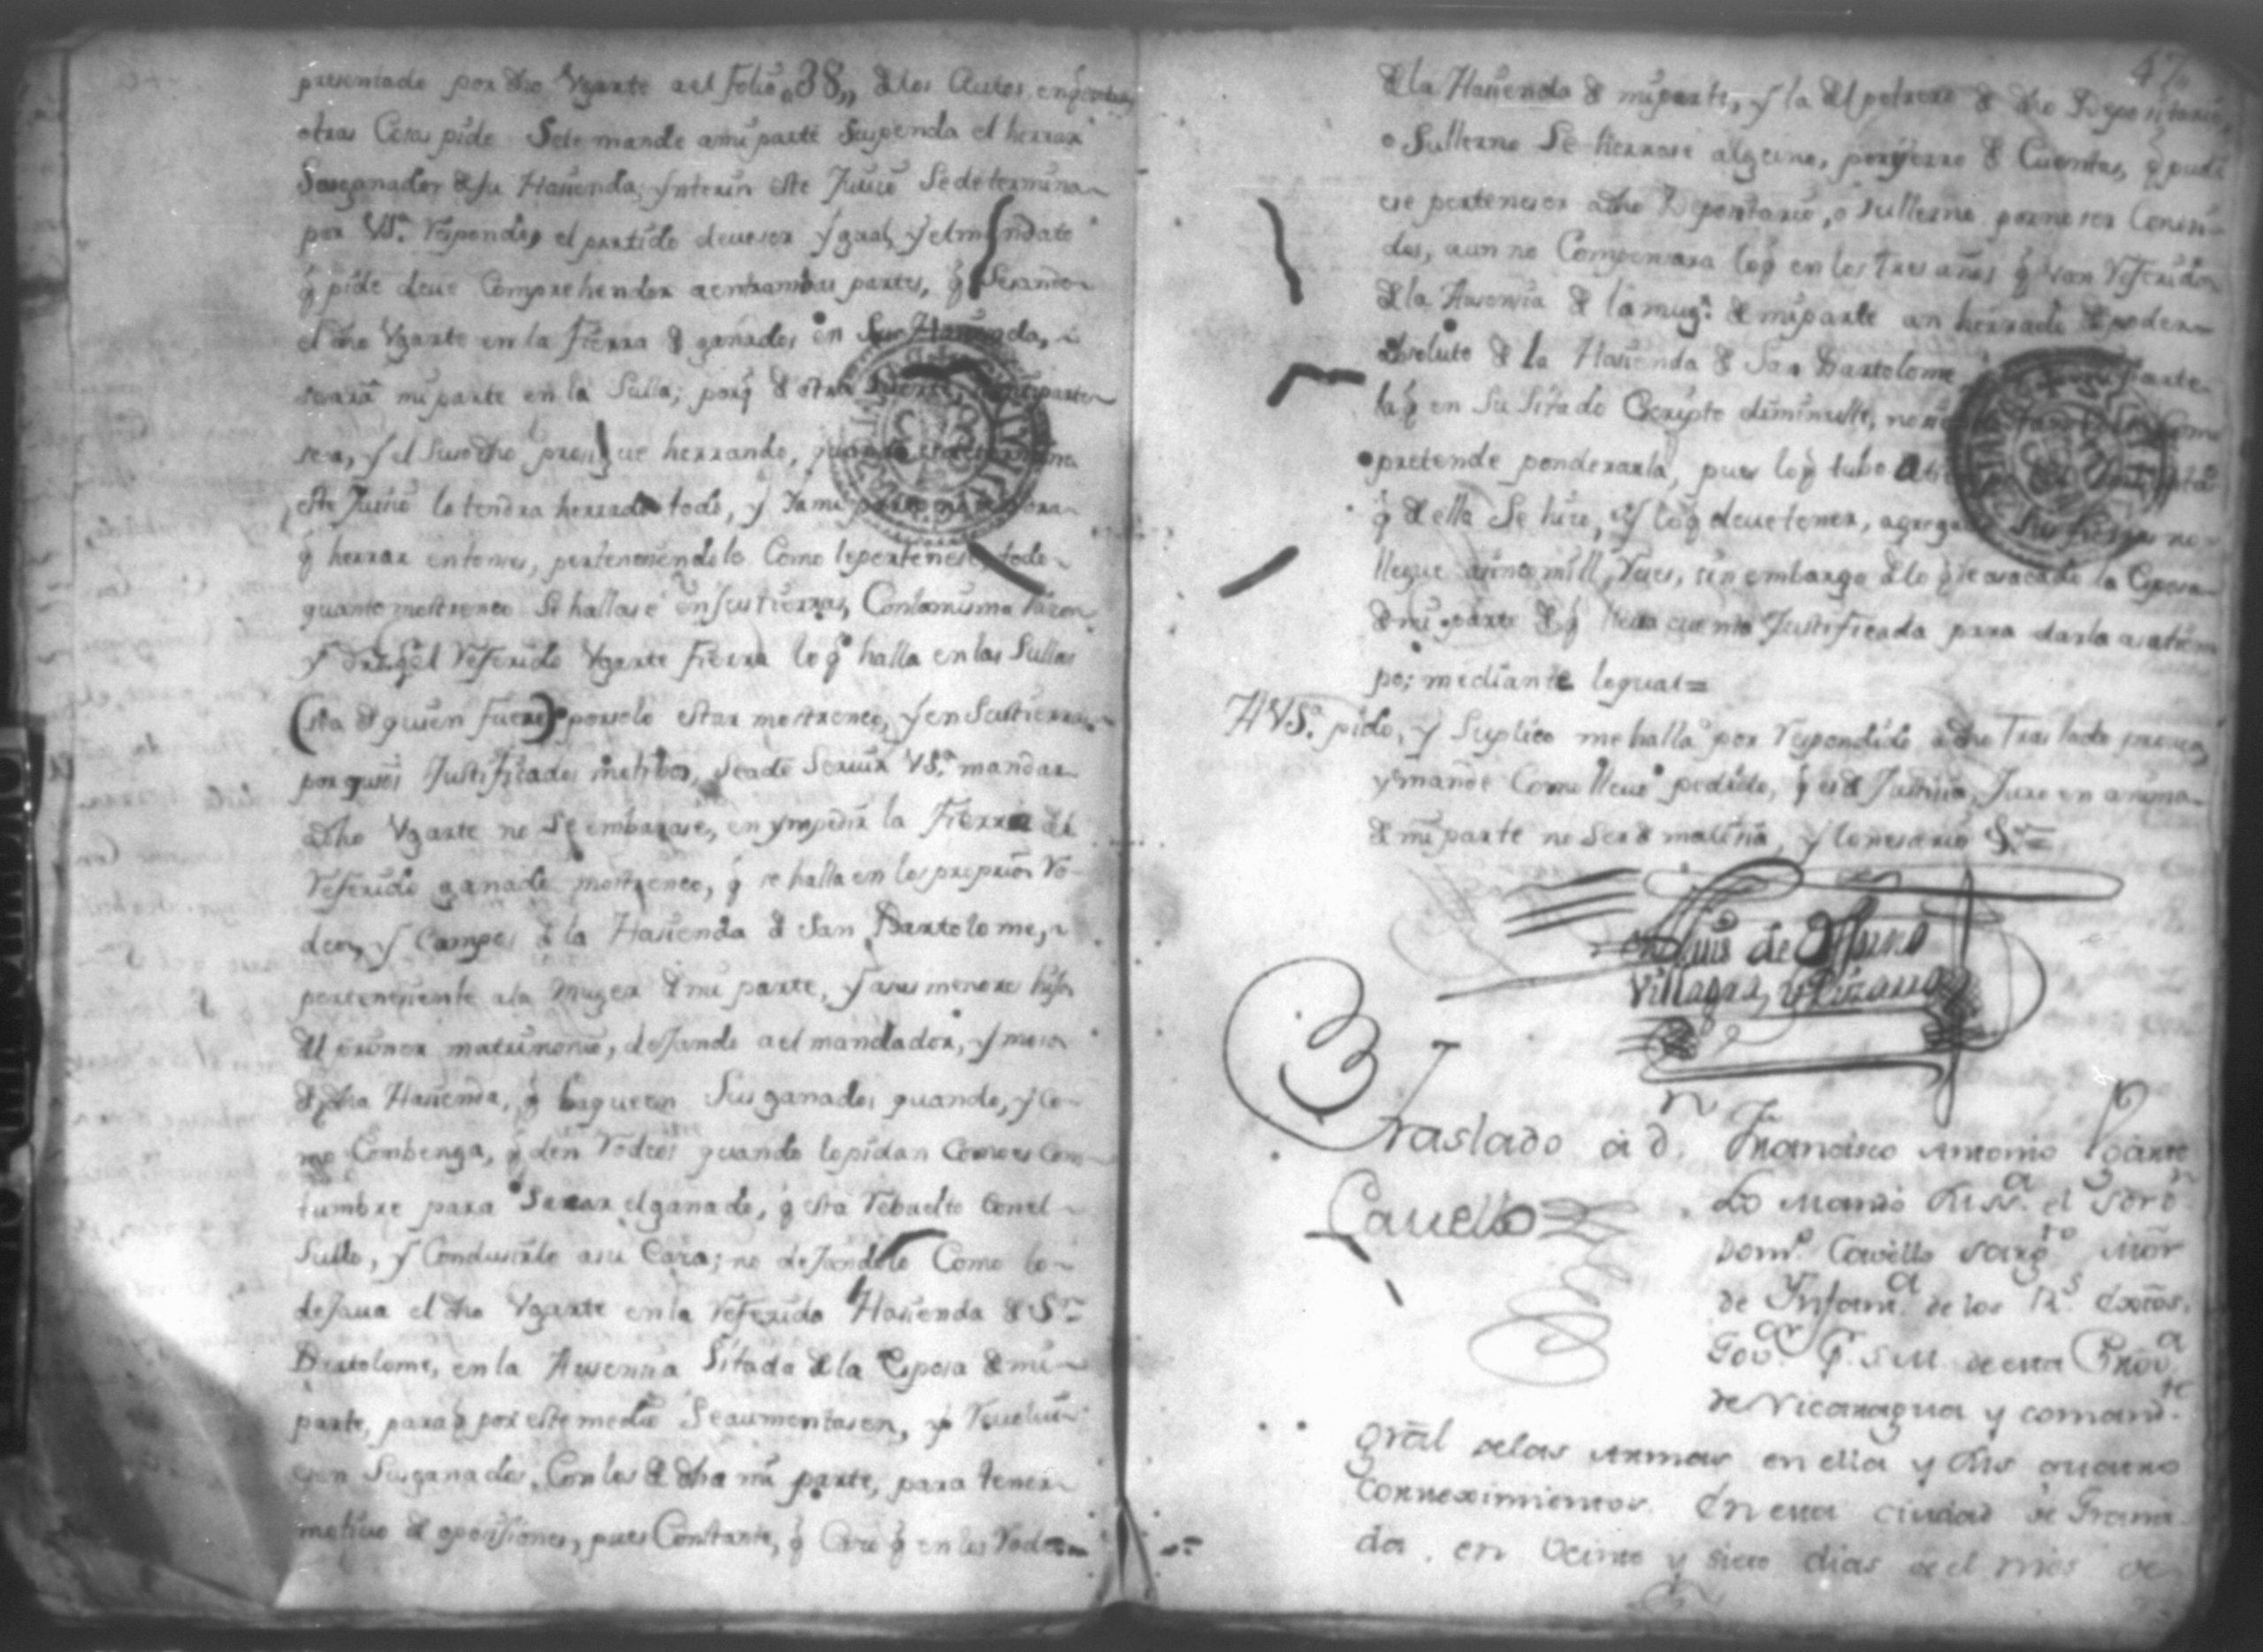 presentado por dho Vgarte a el folio „38„ de los Autos, en q̃ entre
otras Cosas pide Se le mande a mi parte Suspenda el herrar
Sus ganados de su Hasienda, ynterin este Juisio Se determina
por VSª. Respondo, el partido deve ser ygual, y el mandato
q̃ pide deve Comprehender a entrambas partes, q̃ Sesando
el dho Vgarte en la fierra de ganados en Su Hasienda,
sesará mi parte en la Sulla; porq̃ de otra Suerte, mi parte
sesa, y el Susodho prosigue herrando, quando se determina
este Juisio lo tendra herrado todo, y ya mi parte no tendra
q̃ herrar entonses, perteneciendole Como le pertenese todo
quanto mostrenco Se hallase en sus tierras, Con la misma razon
y dro q̃ el Referido Vgarte fierra lo q̃ halla en las Sullas
(sea de quien fuere) por solo estar mostrenco, y en Sus tierras
por cuios Justificados motibos, se a de Servir VSª. mandar
a dho Vgarte no Se embarase, en ympedir la fierra de el
Referido ganado mostrenco, q̃ se halla en los proprios Ro-
deos, y Campos de la Hasienda de San Bartolome,
perteneciente a la muger de mi parte, y a sus menores hijos
del primer matrimonio, dejando a el mandador, y mosos
de dha Hasienda, q̃ baqueen Sus ganados quando, y co-
mo Combenga, q̃ den Rodeos quando lo pidan Como es Cos-
tumbre para Sacar el ganado, q̃ esta Rebuelto Con el
Sullo, y Conducirlo a su Casa; no dejandolo Como lo
dejava el dho Vgarte en la Referida Hasienda de Sn.
Bartolome, en la Ausencia Sitada de la Esposa de mi
parte, para q̃ por este medio Se aumentasen, y Revolvi-
esen Sus ganados, Con los de dha mi parte, para tener
motivo de oposiciones, pues Constante, q̃ Casi q̃ en los Rodeos
47.
de la Hasienda de mi parte, y la del potrero de dho Depositario,
o Sullerno Se herrase alguno, por yerro de Cuentas, q̃ pudi
ese perteneser a dho Depositario, o Sullerno por no ser Conosi-
dos, aun no Compensara lo q̃ en los tres años q̃ van Referidos
de la Ausencia de la mugr. de mi parte an herrado de poder
absoluto de la Hasienda de San Bartolome, parte
la q̃ en Su Sitado Escripto Como
pretende ponderarla, pues lo q̃ tubo
q̃ de ella Se hizo, y lo q̃ deve tener, agregado no
llegue a sinco mill Reses, sin embargo de lo q̃ se a sacado la Esposa
de mi parte de q̃ lleva cuenta Justificada para darla a su tiem
po; mediante lo qual=
A VSª. pido, y Suplico me halla por Respondido a dho Traslado
y mande Como llevo pedido, q̃ es de Justicia, Juro en anima
de mi parte no Ser de malicia, y lo nesesario &ª=
Luis de
Villagra, y Lizano
Traslado á dn. Franco Antonio Vgarte
Cauello
Lo Mandó su Sª. el Sor dn.
Domº. Cavello Sargto. mor
de Infantª. de los Rs. Extos.
Govor. Pr. S M. de esta Provª.
de Nicaragua y comandte.
gral de las Armas en ella y sus quatro
Correximientos. En esta ciudad de Grana
da. en veinte y siete dias de el mes de